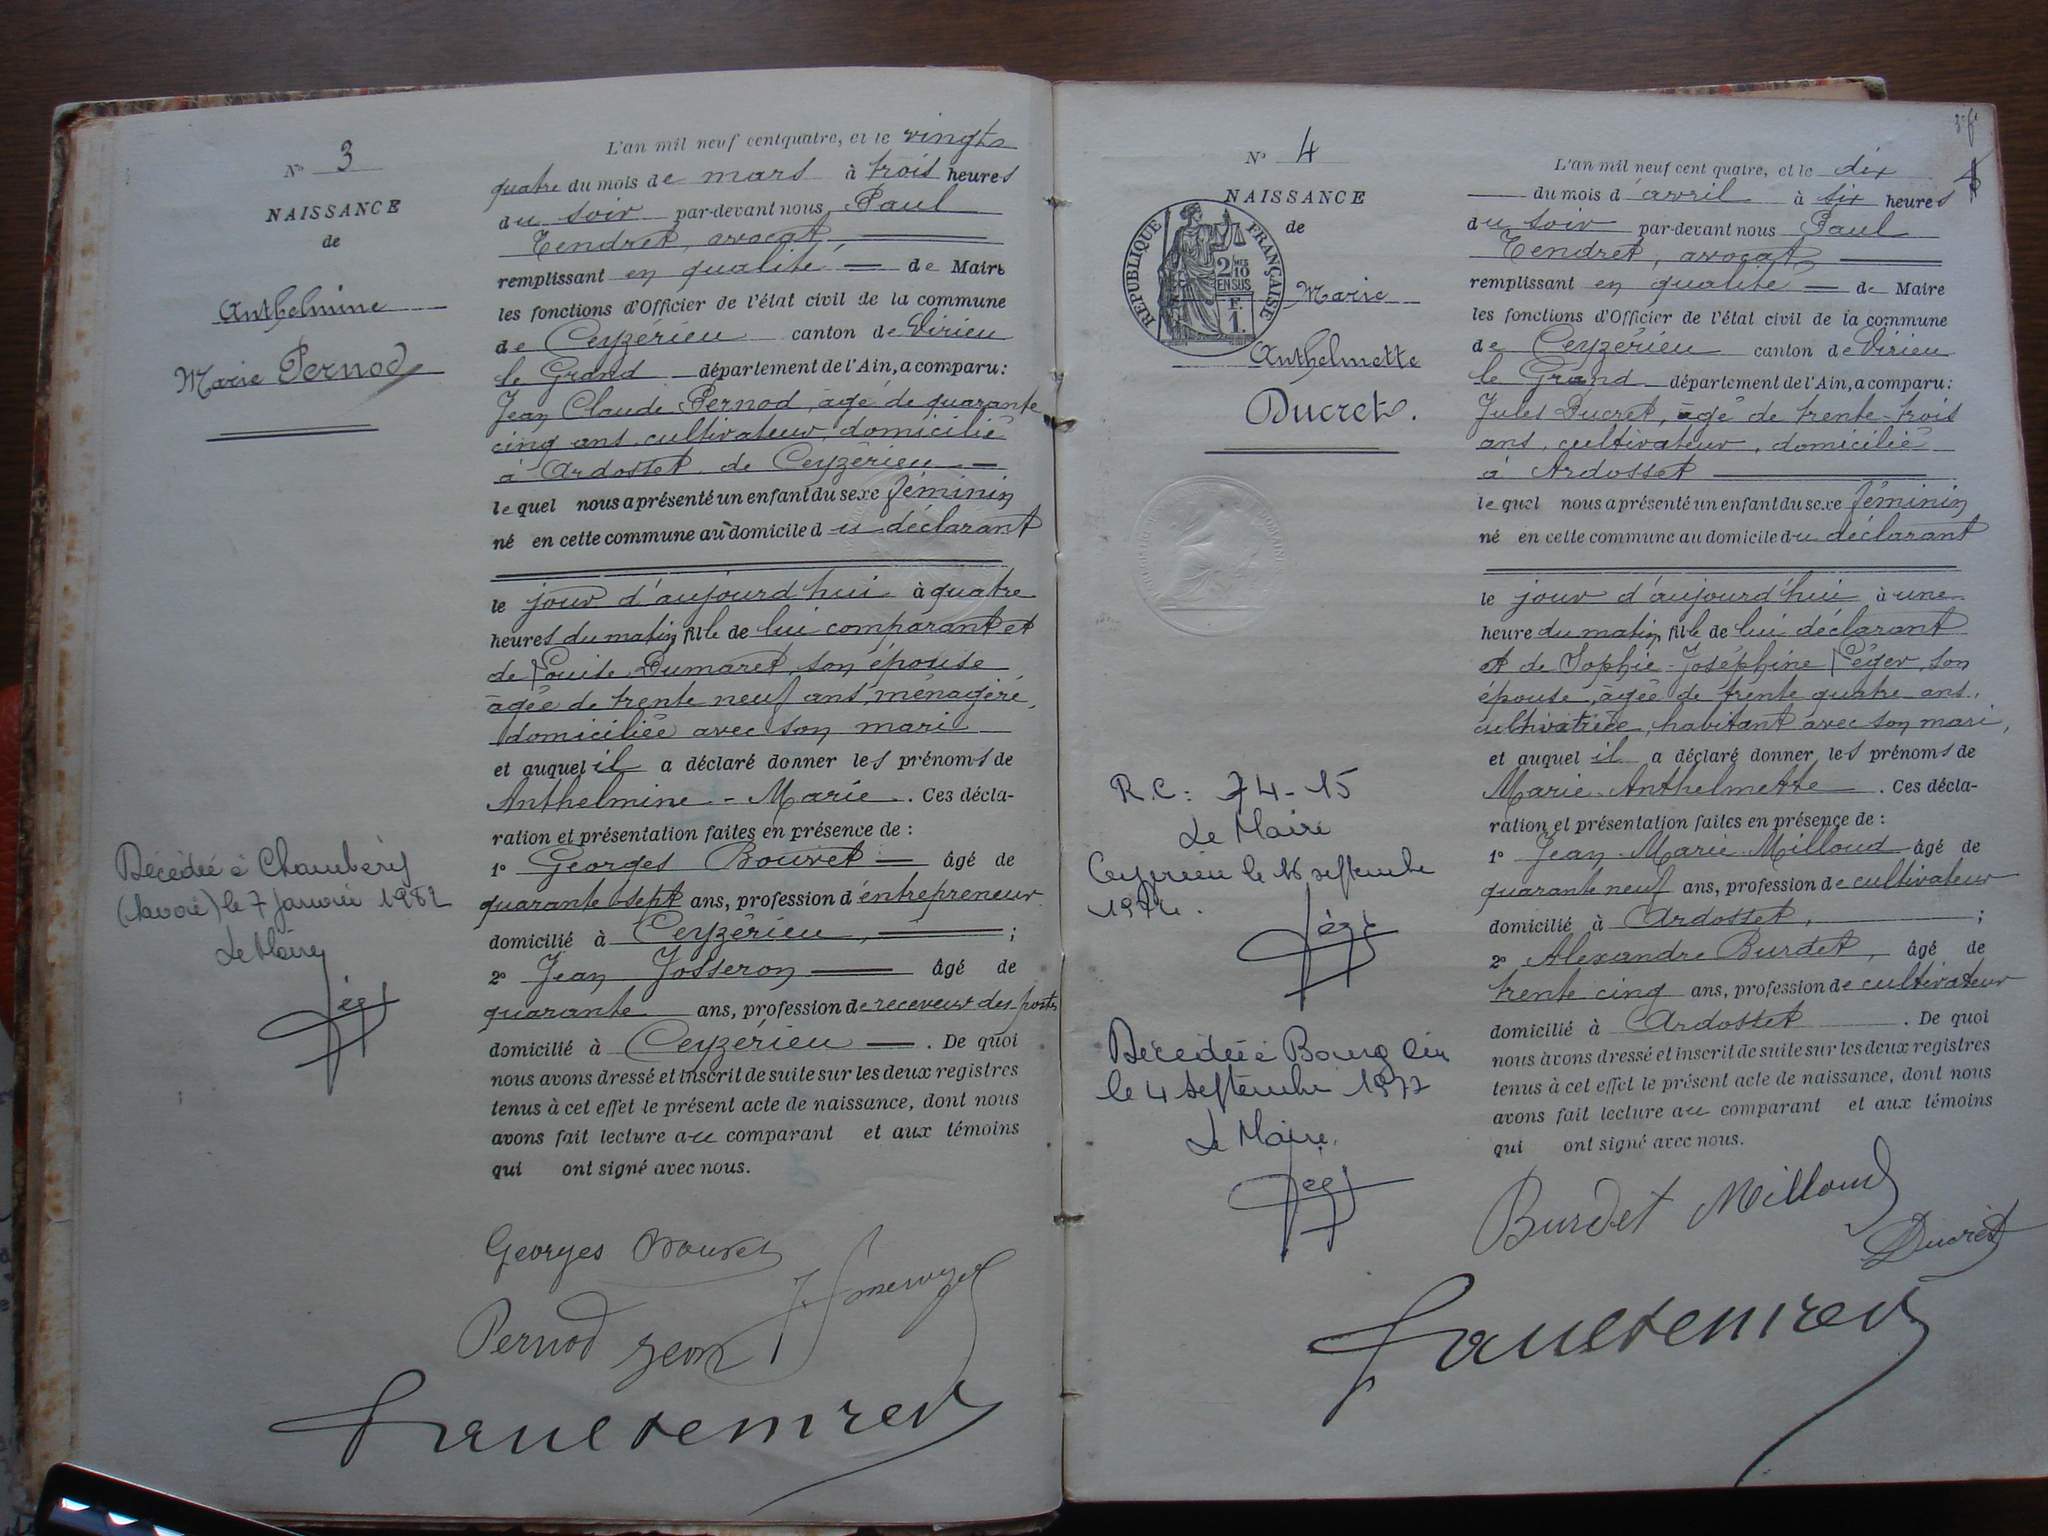 N° 3
NAISSANCE
de
Anthelmine
Marie Pernod
Décédée à Chambéry
(Savoie) le 7 Janvier 1982
Le Maire
L'an mil neuf cent quatre, et le vingt
quatre du mois de mars à trois heures
du soir par-devant nous Paul
Tendret, avocat
remplissant en qualité de Maire
les fonctions d'Officier de l'état civil de la commune
de Ceyzérieu canton de Virieu
le Grand département de l'Ain, a comparu:
Jean Claude Pernod, âgé de quarante
cinq ans, cultivateur, domicilié
à Ardosset, de Ceyzérieu
le quel nous a présenté un enfant du sexe féminin
né en cette commune au domicile du déclarant
le jour d'aujourd'hui à quatre
heures du matin fille de lui comparant et
de Louise Dumaret, son épouse
âgée de trente neuf ans, ménagère,
domiciliée avec son mari
et auquel il a déclaré donner les prénoms de
Anthelmine - Marie. Ces décla-
ration et présentation faites en présence de :
1° Georges Bouvet âgé de
quarante sept ans, profession d'entrepreneur
domicilié à Ceyzérieu, ;
2° Jean Josseron âgé de
quarante ans, profession de receveur des postes
domicilié à Ceyzérieu . De quoi
nous avons dressé et inscrit de suite sur les deux registres
tenus à cet effet le présent acte de naissance, dont nous
avons fait lecture au comparant et aux témoins
qui ont signé avec nous.
Georges Bouvet
Pernod Jean
N° 4
NAISSANCE
de
RÉPUBLIQUE FRANÇAISE
2/10 MES
EN SUS
F.
1.
Marie
Anthelmette
Ducret.
R.C: 74-15
Le Maire
Ceyzérieu le 16 septembre
Décédée à Bourg Ain
le 4 septembre 1972
Le Maire.
L'an mil neuf cent quatre, et le dix
du mois d'avril à six heures
du soir par-devant nous Paul
Tendret, avocat
remplissant en qualité de Maire
les fonctions d'Officier de l'état civil de la commune
de Ceyzérieu canton de Virieu
le Grand département de l'Ain, a comparu:
Jules Ducret, âgé de trente-trois
ans, cultivateur, domicilié
à Ardosset
le quel nous a présenté un enfant du sexe féminin
né en cette commune au domicile du déclarant
le jour d'aujourd'hui à une
heure du matin fille de lui déclarant
et de Sophie-Joséphine Léger, son
épouse, âgée de trente quatre ans,
cultivatrice, habitant avec son mari,
et auquel il a déclaré donner les prénoms de
Marie-Anthelmette. Ces décla-
ration et présentation faites en présence de :
1° Jean-Marie Milloud âgé de
quarante neuf ans, profession de cultivateur
domicilié à Ardosset, ;
2° Alexandre Burdet, âgé de
trente cinq ans, profession de cultivateur
domicilié à Ardosset . De quoi
nous avons dressé et inscrit de suite sur les deux registres
tenus à cet effet le présent acte de naissance, dont nous
avons fait lecture au comparant et aux témoins
qui ont signé avec nous.
Burdet Milloud
Ducret